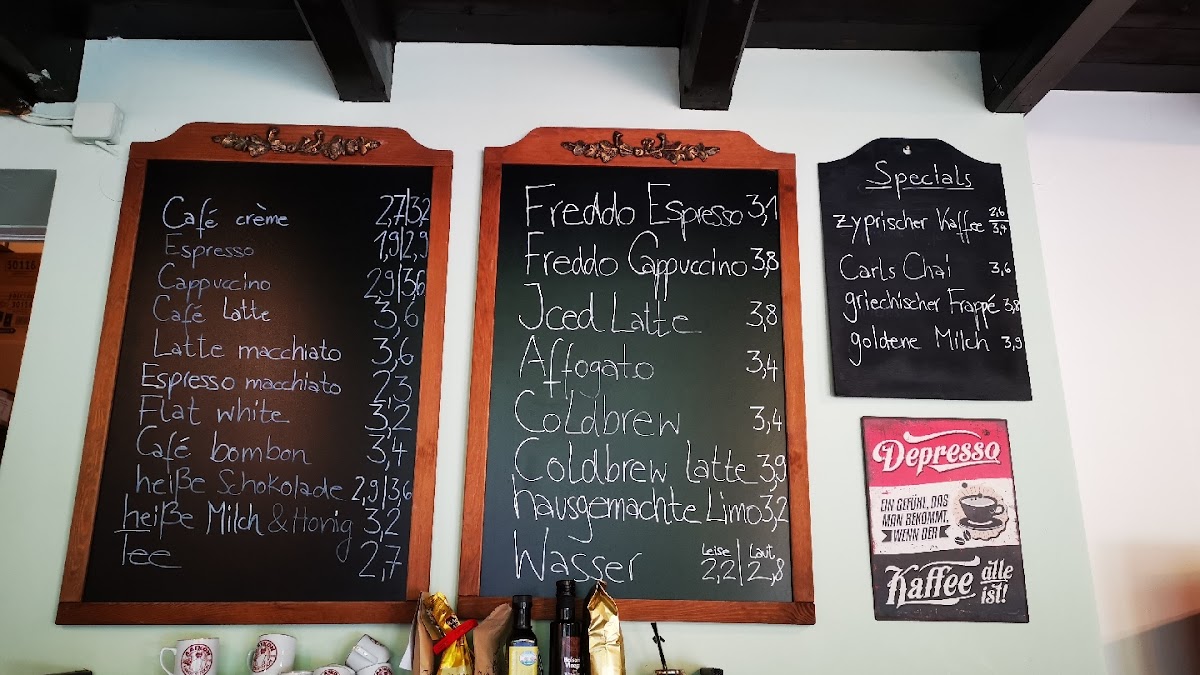 Café crème 2,7|3,2
Espresso 1,9|2,9
Cappuccino 2,9|3,6
Café Latte 3,6
Latte macchiato 3,6
Espresso macchiato 2,3
Flat white 3,2
Café bombon 3,4
heiße Schokolade 2,9|3,6
heiße Milch & Honig 3,2
Tee 2,7
Freddo Espresso 3,1
Freddo Cappuccino 3,8
Iced Latte 3,8
Affogato 3,4
Coldbrew 3,4
Coldbrew Latte 3,9
hausgemachte Limo 3,2
Wasser Leise 2,2 | Laut 2,8
Specials
zyprischer Kaffee 2,6 / 3,4
Carls Chai 3,6
griechischer Frappé 3,8
goldene Milch 3,9
Depresso
EIN GEFÜHL, DAS
MAN BEKOMMT,
WENN DER
Kaffee alle
ist!
50116